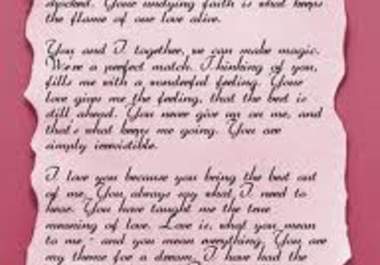 shocked. Your undying faith is what keeps
the flame of our love alive.
You and I together, we can make magic.
We're a perfect match. Thinking of you,
fills me with a wonderful feeling. Your
love gives me the feeling, that the best is
still ahead. You never give up on me, and
that's what keeps me going. You are
simply irresistible.
I love you because you bring the best out
of me. You always say what I need to
hear. You have taught me the true
meaning of love. Love is, what you mean
to me - and you mean everything. You are
my theme for a dream. I have had the